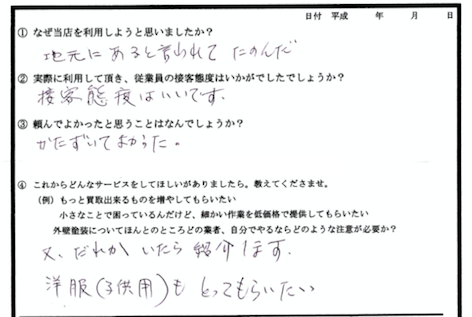 日付 平成　　年　　月　　日
① なぜ当店を利用しようと思いましたか？
地元にあると言われてたのんだ
② 実際に利用して頂き、従業員の接客態度はいかがでしたでしょうか？
接客態度はいいです.
③ 頼んでよかったと思うことはなんでしょうか？
かたずいてよかった。
④ これからどんなサービスをしてほしいがありましたら。教えてくださませ。
（例）もっと買取出来るものを増やしてもらいたい
小さなことで困っているんだけど、細かい作業を低価格で提供してもらいたい
外壁塗装についてほんとのところどの業者、自分でやるならどのような注意が必要か？
又、だれかいたら紹介します.
洋服(子供用)もとってもらいたい